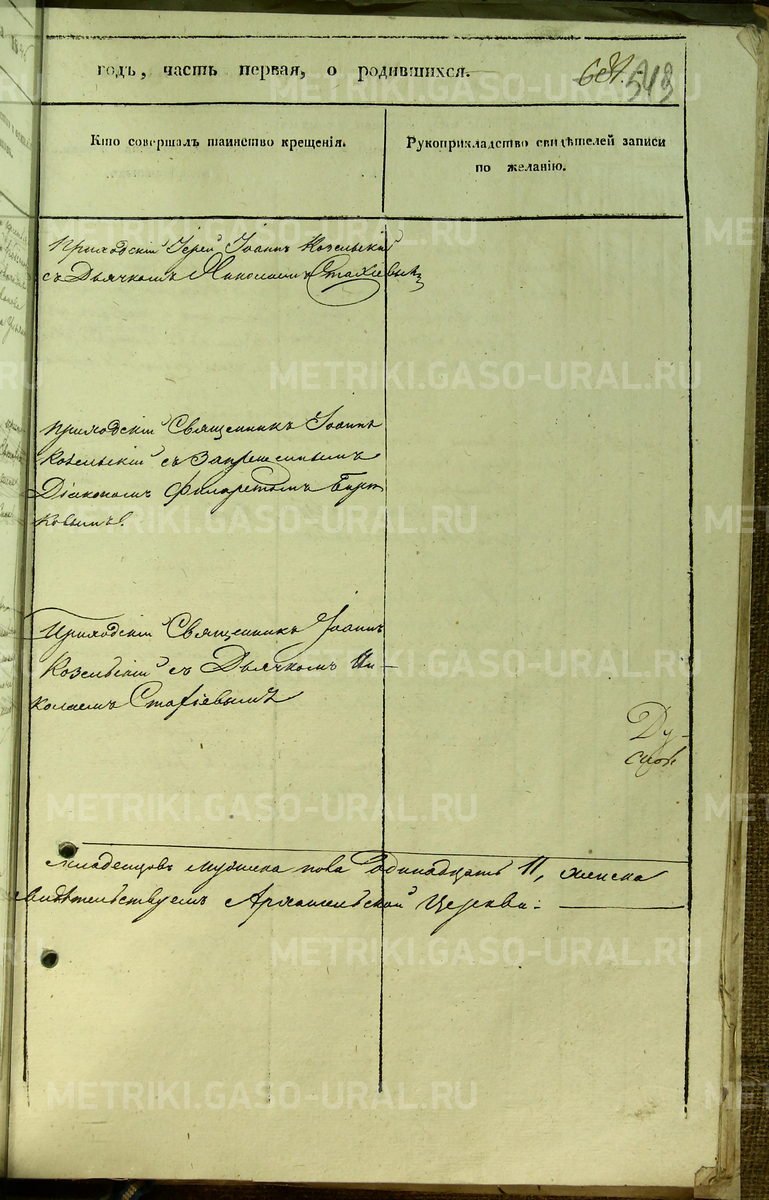 годъ, часть первая, о родившихся.
543
Кто совершалъ таинство крещенія.
Рукоприкладство свидѣтелей записи
по желанію.
Приходскій Іерей Іоаннъ Козельскій
съ Дьячкомъ Николаемъ Стахіевымъ
Приходскій Священникъ Іоаннъ
Козельскій съ Запрещеннымъ
Діакономъ Филаретомъ
ковымъ.
Приходскій Священникъ Іоаннъ
Козельскій съ Дьячкомъ Ни-
колаемъ Стахіевымъ
Ду-
младенцовъ мужеска пола одинадцать 11, женска
свидѣтельствуемъ Архангельской Церкви:
METRIKI.GASO-URAL.RU